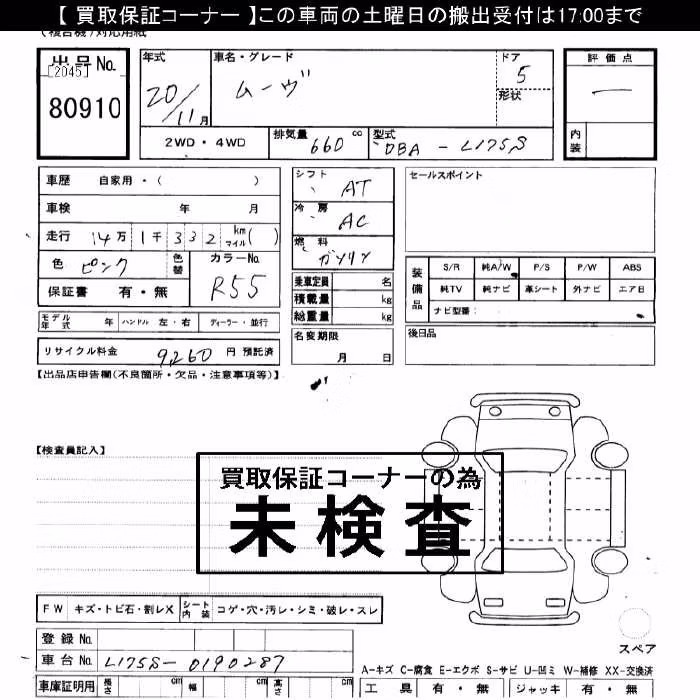 【 買取保証コーナー 】この車両の土曜日の搬出受付は17:00まで
(複合機)対応用紙
出品No.
[2045]
80910
年式
20/11月
車名・グレード
ムーヴ
ドア
5
形状
評価点
内装
2WD・4WD
排気量 660 cc
型式 DBA - L175S
車歴 自家用・( )
車検 年 月
走行 14万1千332 km マイル( )
色 ピンク 色替 カラーNo. R55
保証書 有・無
モデル年式 年 ハンドル 左・右 ディーラー・並行
リサイクル料金 9,260 円 預託済
シフト AT
冷房 AC
燃料 ガソリン
乗車定員 名
積載量 kg
総重量 kg
名変期限
月 日
セールスポイント
装備品
S/R 純A/W P/S P/W ABS
純TV 純ナビ 革シート 外ナビ エア日
ナビ型番:
後日品
【出品店申告欄(不良箇所・欠品・注意事項等)】
【検査員記入】
買取保証コーナーの為
未検査
FW キズ・トビ石・割レX シート内装 コゲ・穴・汚レ・シミ・破レ・スレ
登録No.
車台No. L175S-0190287
車庫証明用 長さ cm 幅 cm 高さ cm
スペア
A-キズ C-腐食 E-エクボ S-サビ U-凹ミ W-補修 XX-交換済
工具 有・無 ジャッキ 有・無